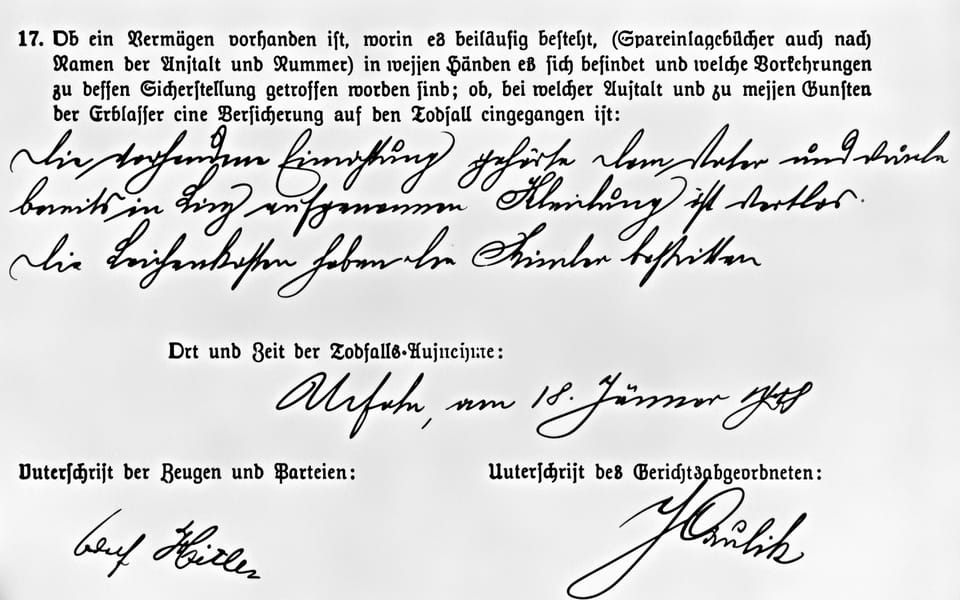 17. Ob ein Vermögen vorhanden ist, worin es beiläufig besteht, (Spareinlagebücher auch nach
Namen der Anstalt und Nummer) in wessen Händen es sich befindet und welche Vorkehrungen
zu dessen Sicherstellung getroffen worden sind; ob, bei welcher Anstalt und zu wessen Gunsten
der Erblasser eine Versicherung auf den Todfall eingegangen ist:
Die vorhandene Einrichtung gehörte dem Vater und wurde
bereits in Linz aufgenommen Kleidung ist wertlos.
Die Leichenkosten haben die Kinder bestritten
Ort und Zeit der Todfalls-Aufnahme:
Urfahr, am 18. Jänner 1908
Unterschrift der Zeugen und Parteien:
Unterschrift des Gerichtsabgeordneten:
Hitler